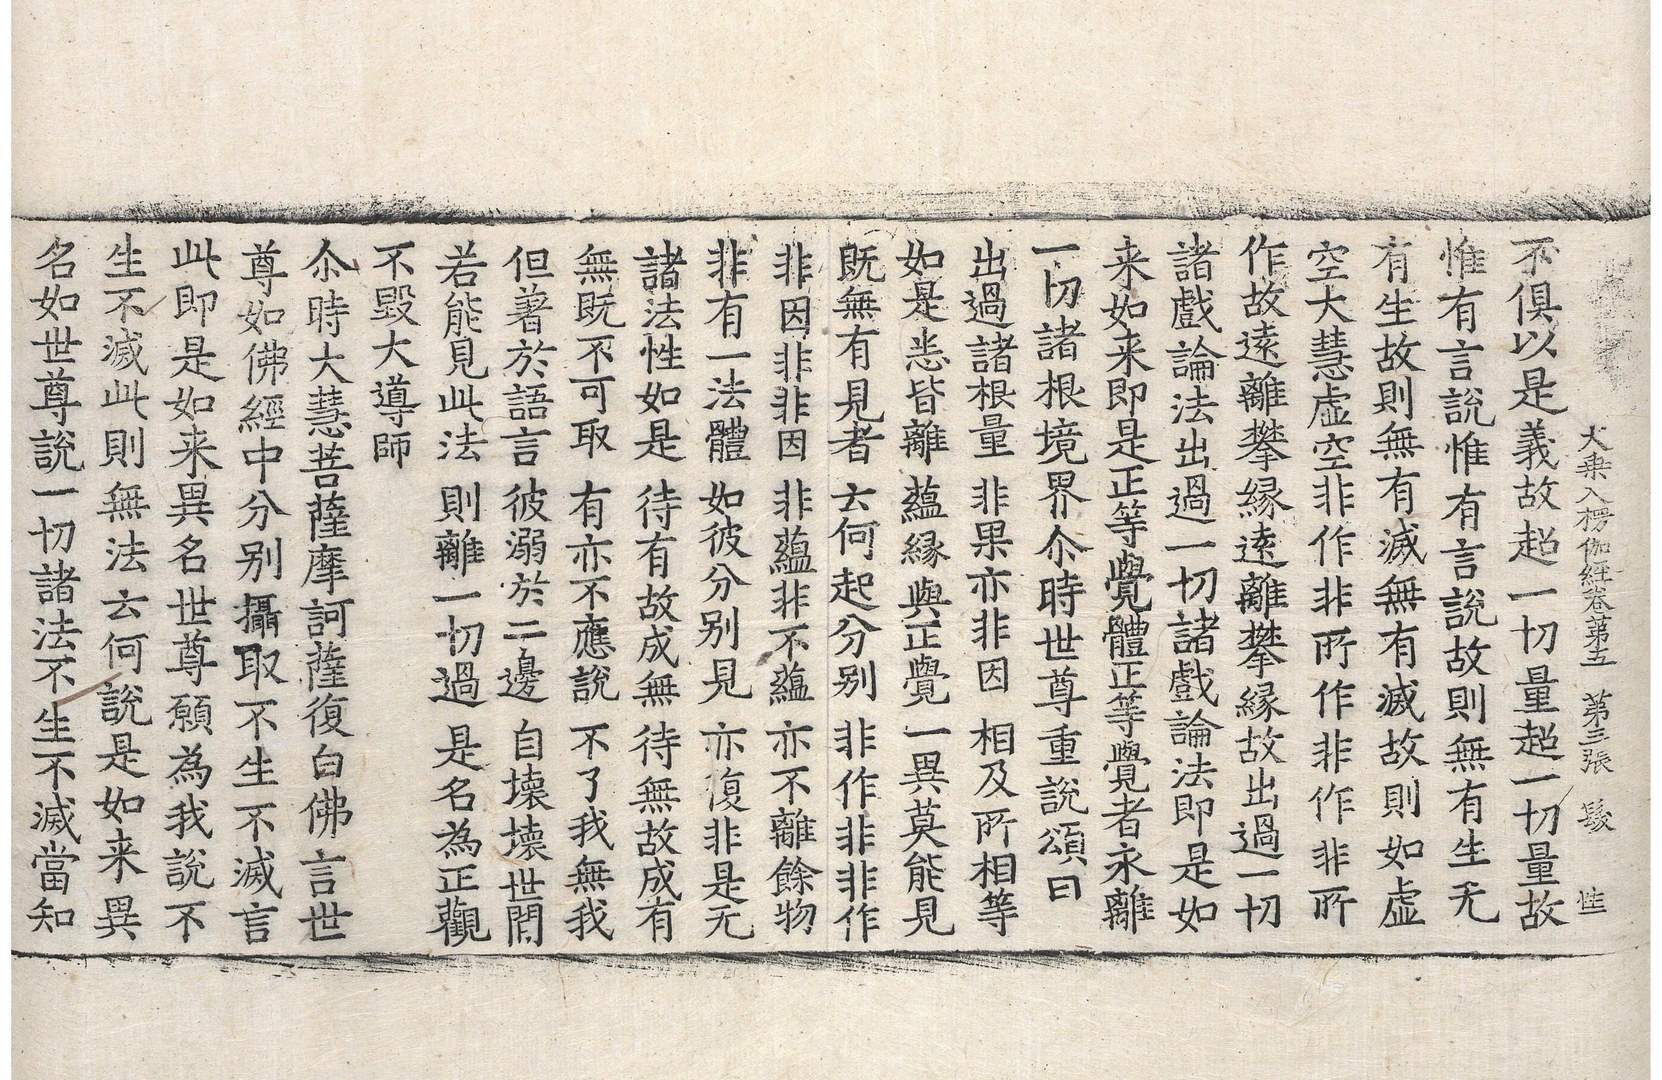 大乘入楞伽經卷第五 第三張 髮 性
不俱以是義故超一切量超一切量故
惟有言說惟有言說故則無有生无
有生故則無有滅無有滅故則如虛
空大慧虛空非作非所作非作非所
作故遠離攀緣遠離攀緣故出過一切
諸戲論法出過一切諸戲論法即是如
来如来即是正等覺體正等覺者永離
一切諸根境界尒時世尊重說頌曰
出過諸根量 非果亦非因 相及所相等
如是悉皆離 蘊緣與正覺 一異莫能見
既無有見者 云何起分别 非作非非作
非因非非因 非蘊非不蘊 亦不離餘物
非有一法體 如彼分别見 亦復非是无
諸法性如是 待有故成無 待無故成有
無既不可取 有亦不應說 不了我無我
但著於語言 彼溺於二邊 自壞壞世間
若能見此法 則離一切過 是名為正觀
不毀大導師
尒時大慧菩薩摩訶薩復白佛言世
尊如佛經中分别攝取不生不滅言
此即是如来異名世尊願為我說不
生不滅此則無法云何說是如来異
名如世尊說一切諸法不生不滅當知